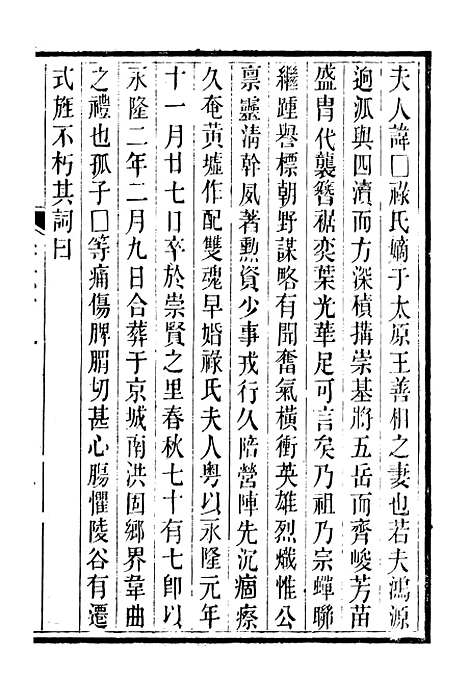 夫人諱□祿氏嫡于太原王善相之妻也若夫鴻源
逈派與四瀆而方深積搆崇基將五岳而齊峻芳苗
盛胄代襲簪裾奕葉光華足可言矣乃祖乃宗蟬聯
繼踵譽標朝野謀略有聞奮氣橫衝英雄烈熾惟公
禀靈淸幹風著勲資少事戎行久陪營陣先沉痼瘵
久奄黃墟作配雙魂早婚祿氏夫人粵以永隆元年
十一月廿七日卒於崇賢之里春秋七十有七卽以
永隆二年二月九日合葬于京城南洪固鄉界韋曲
之禮也孤子□等痛傷脾𦝩切甚心腸懼陵谷有遷
式旌不朽其詞曰